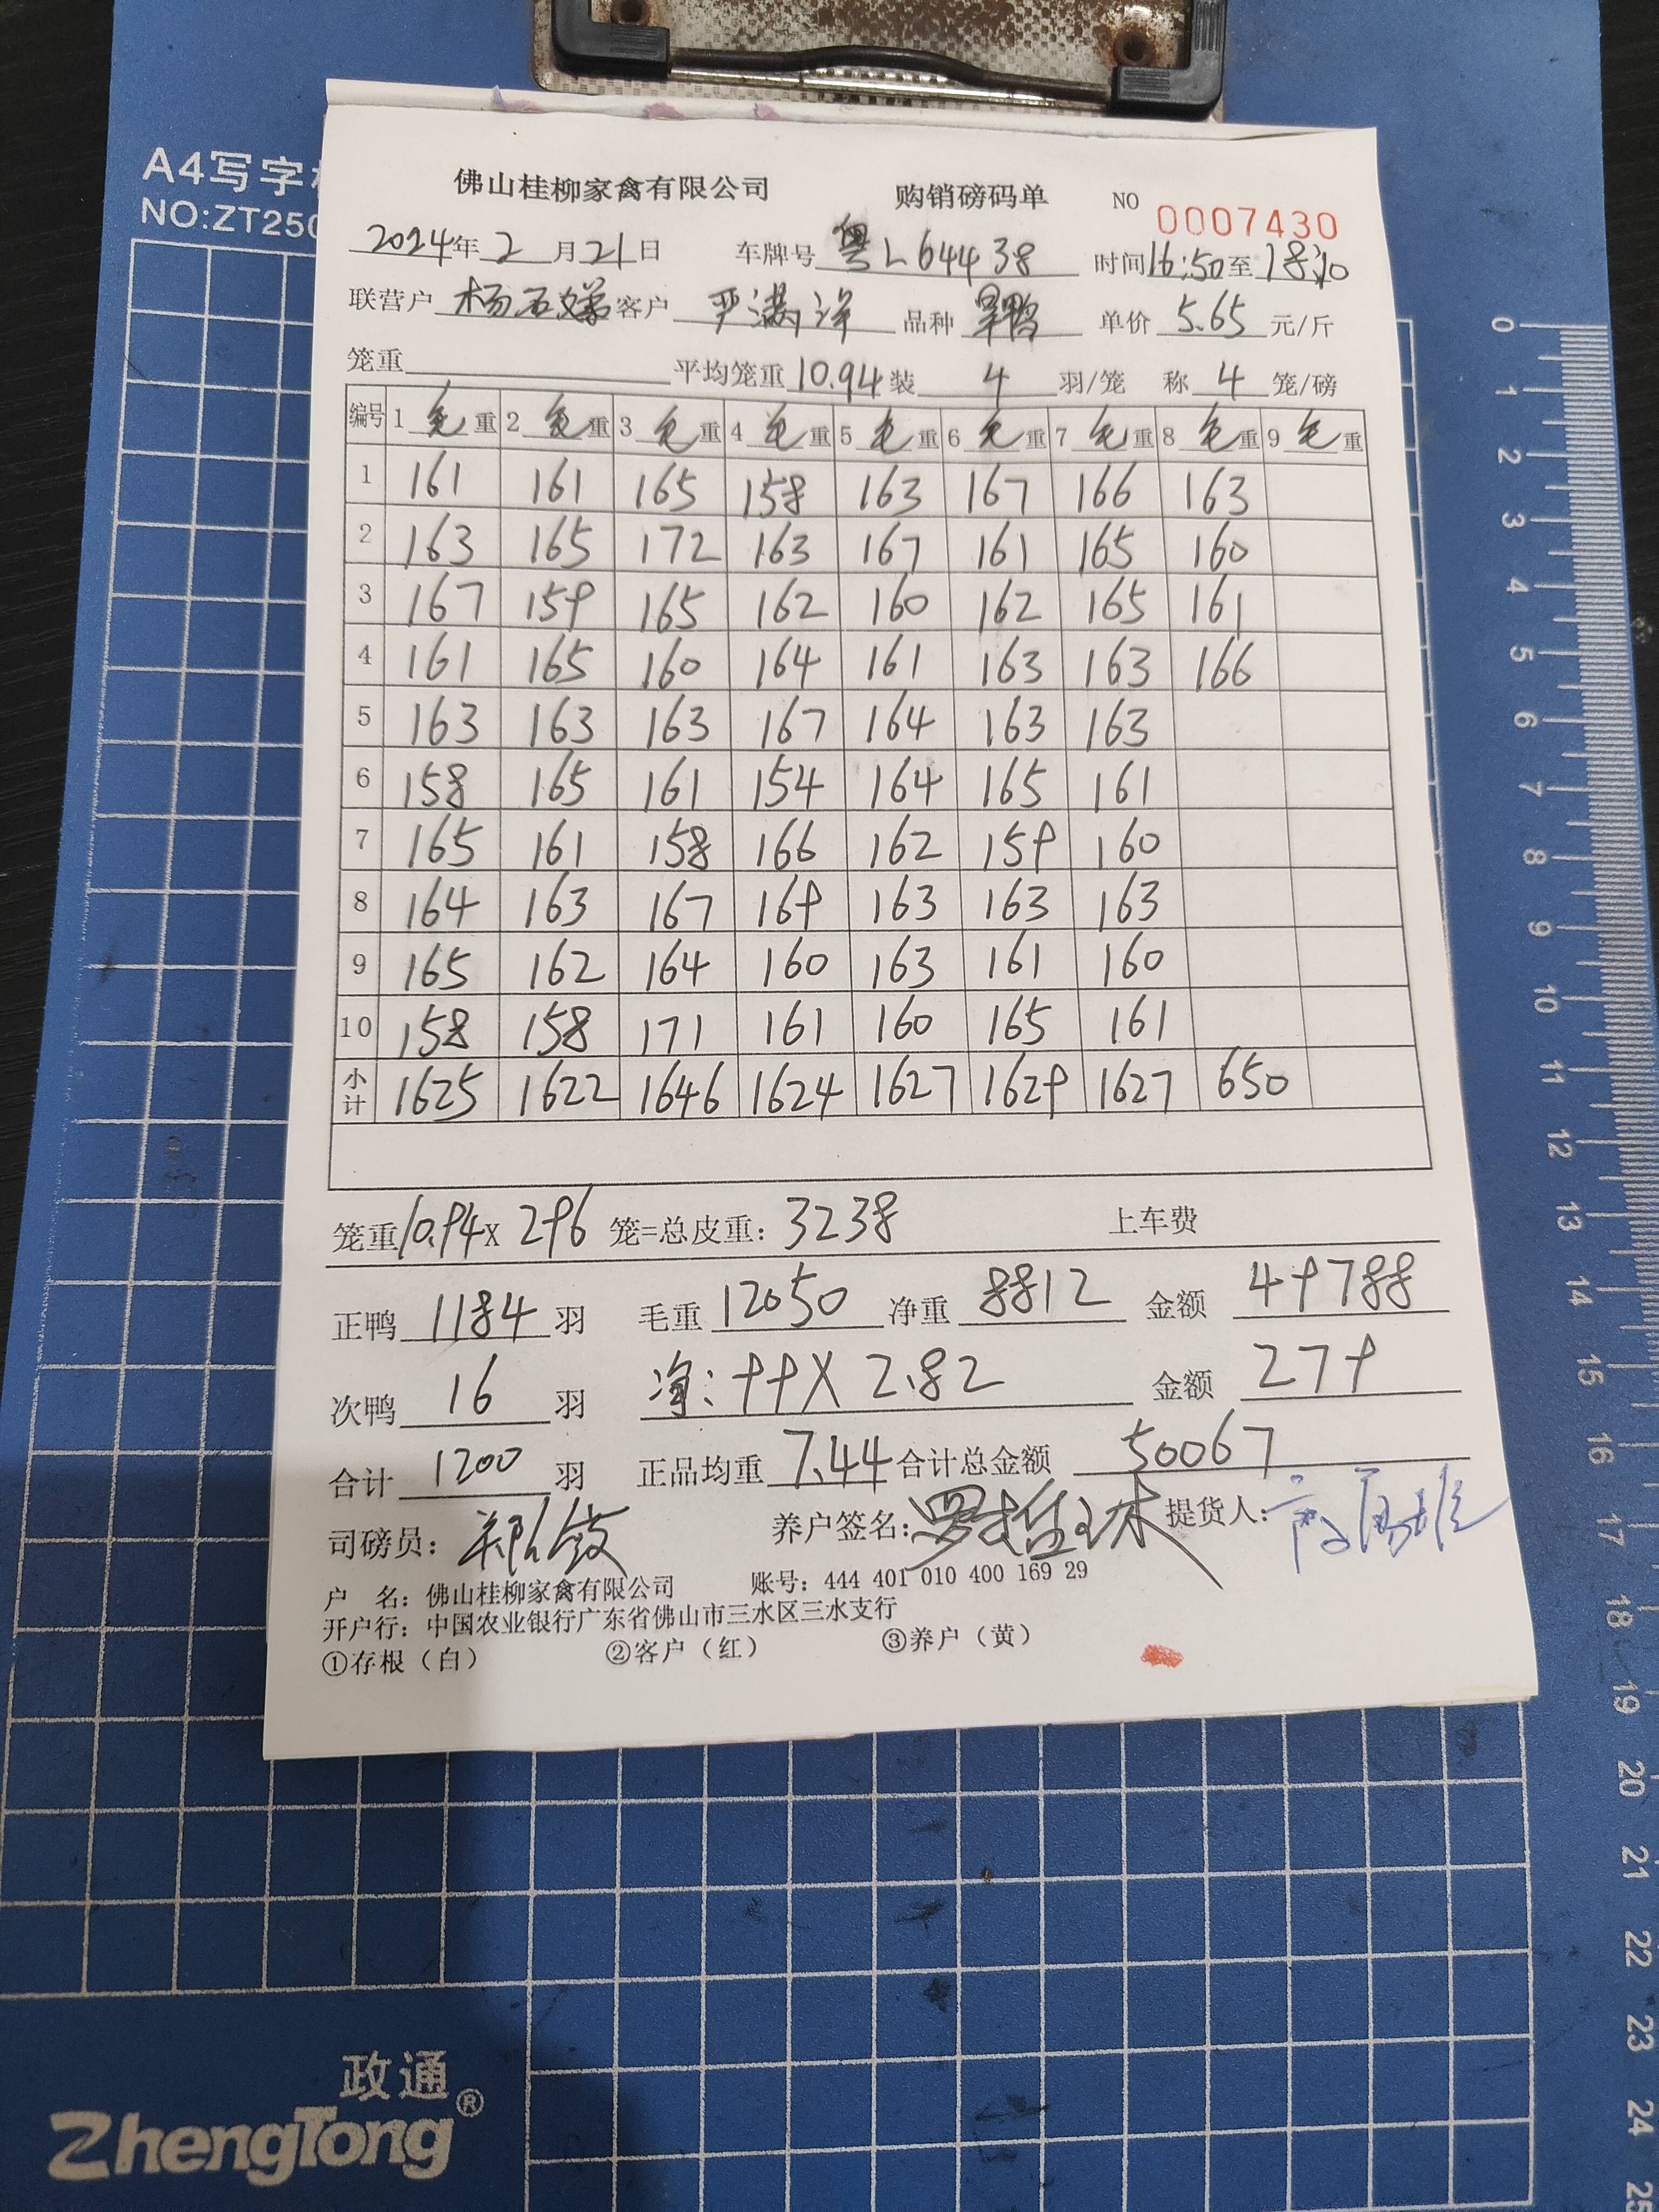 A4写字
NO:ZT250
佛山桂柳家禽有限公司 购销磅码单 NO 0007430
2024年2月21日 车牌号 粤L64438 时间16:50至18:10
联营户 杨 客户 严满洋 品种 单价 5.65 元/斤
笼重 平均笼重 10.94 装 4 羽/笼 称 4 笼/磅
编号 1 毛重 2 毛重 3 毛重 4 毛重 5 毛重 6 毛重 7 毛重 8 毛重 9 毛重
1 161 161 165 158 163 167 166 163
2 163 165 172 163 167 161 165 160
3 167 159 165 162 160 162 165 161
4 161 165 160 164 161 163 163 166
5 163 163 163 167 164 163 163
6 158 165 161 154 164 165 161
7 165 161 158 166 162 159 160
8 164 163 167 169 163 163 163
9 165 162 164 160 163 161 160
10 158 158 171 161 160 165 161
小计 1625 1622 1646 1624 1627 1629 1627 650
笼重10.94X 296 笼=总皮重: 3238 上车费
正鸭 1184 羽 毛重 12050 净重 8812 金额 49788
次鸭 16 羽 净: 99X 2.82 金额 279
合计 1200 羽 正品均重 7.44 合计总金额 50067
司磅员: 养户签名: 提货人:
户 名: 佛山桂柳家禽有限公司 账号: 444 401 010 400 169 29
开户行: 中国农业银行广东省佛山市三水区三水支行
①存根(白) ②客户(红) ③养户(黄)
0
1
2
3
4
5
6
7
8
9
10
11
12
13
14
15
16
17
18
19
20
21
22
23
24
25
政通®
ZhengTong